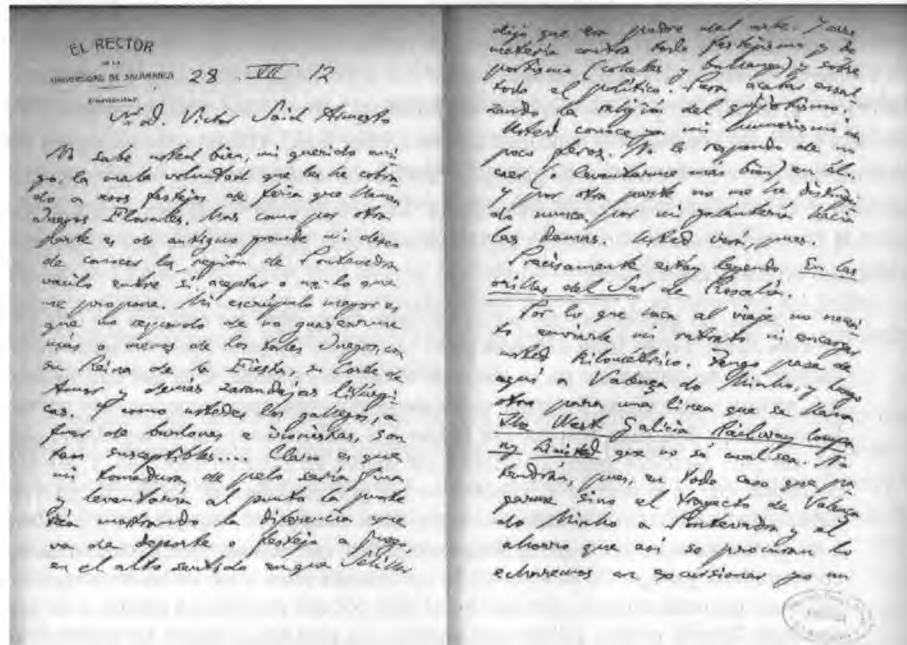 EL RECTOR
DE LA
UNIVERSIDAD DE SALAMANCA
28 VII 12
Particular
Sr. D. Victor Said Armesto
No sabe usted bien, mi querido ami
go, la mala voluntad que les he cobra
do a esos festejos de feria que llaman
Juegos Florales. Mas como por otra
parte es de antiguo grande mi deseo
de conocer la región de Pontevedra
vacilo entre si aceptar o no lo que
me propone. Mi escrúpulo mayor es
que no respondo de no guasearme
más o menos de los tales Juegos, con
su Reina de la Fiesta, su Corte de
Amor y demás zarandajas litúrgi
cas. Y como ustedes los gallegos, a
fuer de burlones e ironistas, son
tan susceptibles.... Claro es que
mi tomadura de pelo sería fina
y levantaría al punto la puntería
mostrando la diferencia que
va de deporte o festejo a juego
en el alto sentido en que Schiller
dijo que era padre del arte. Y arre
metería contra todo festejismo y de
portismo (cohetes y bullanga) y sobre
todo el político. Para acabar ensal
zando la religión del quijotismo.
Usted conoce ya mi humorismo un
poco feroz. No le respondo de no
caer (o levantarme más bien) en él.
Y por otra parte no me he distingui
do nunca por mi galantería hacia
las damas. Usted verá, pues.
Precisamente estoy leyendo En las
orillas del Sar de Rosalía.
Por lo que hace al viaje no necesi
to enviarle mi retrato ni encargar
usted kilométrico. Tengo pase de
aquí a Valença do Minho, y luego
otro para una línea que se llama
The West Galicia Railway Compa
ny Limited que no sé cual sea. No
tendrán, pues, en todo caso que pa
garme sino el trayecto de Valença
do Minho a Pontevedra y el
ahorro que así se procuran lo
echaremos en excursionar por un